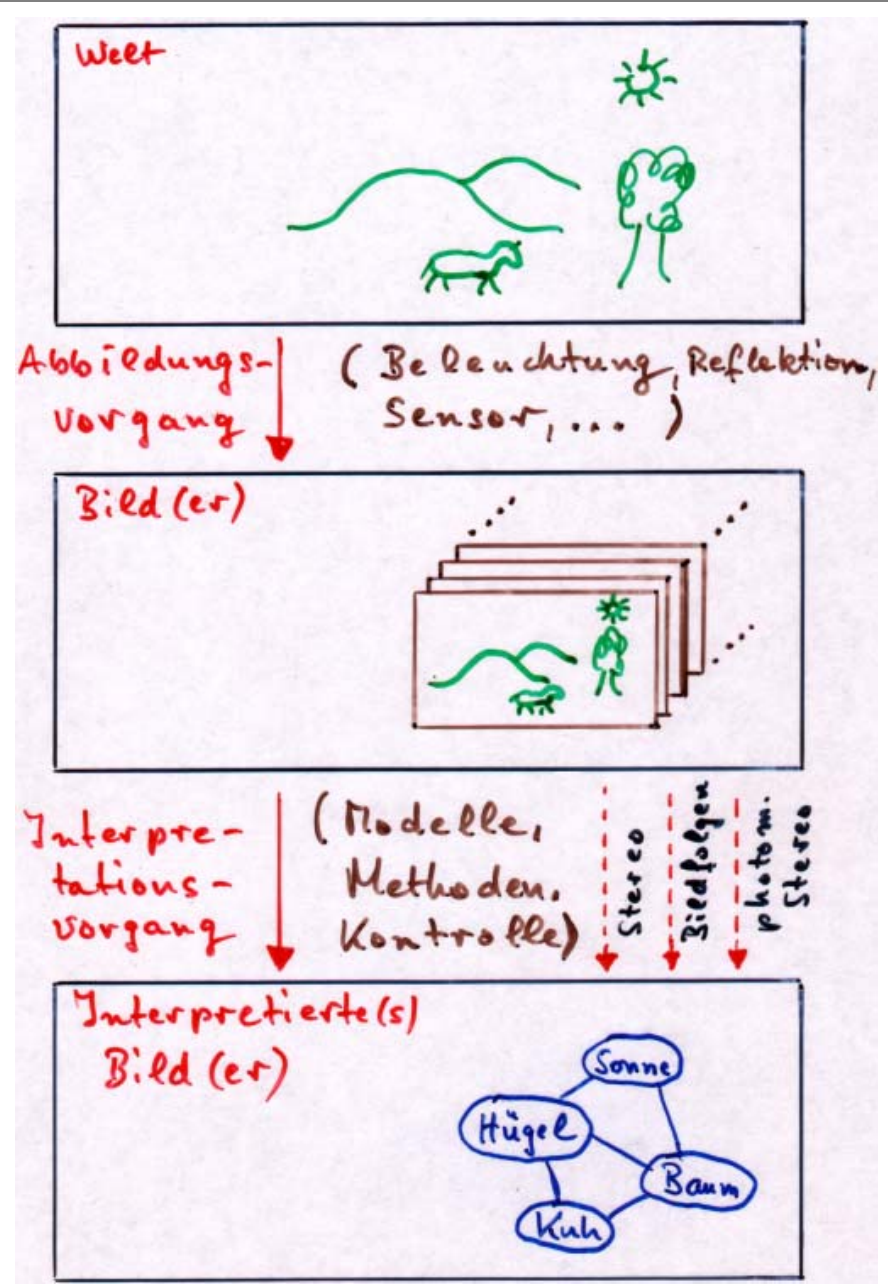 Welt
Abbildungs-
vorgang
(Beleuchtung, Reflektion,
Sensor, ... )
Bild(er)
Interpre-
tations-
vorgang
(Modelle,
Methoden,
Kontrolle)
Stereo
Bildfolgen
photom.
Stereo
Interpretierte(s)
Bild(er)
Sonne
Hügel
Baum
Kuh